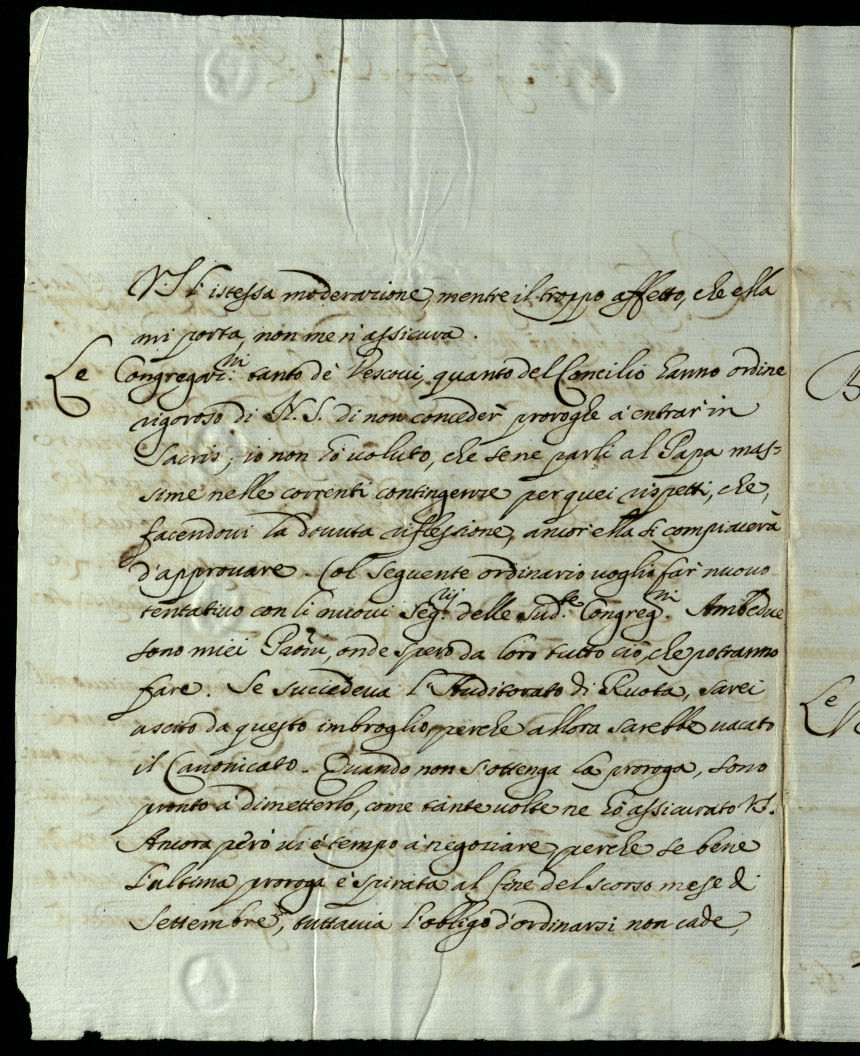 V.S. l'istessa moderazione, mentre il troppo affetto, che ella
mi porta, non me n'assicura.
Le Congregaz.ni tanto de Vescovi, quanto del Concilio hanno ordine
rigoroso di N.S. di non conceder proroghe à entrar in
Sacris; io non hò voluto, che se ne parli al Papa mas-
sime nelle correnti contingenze per quei rispetti, che,
facendovi la dovuta riflessione, ancor ella si compiacerà
d'approuare. Col seguente ordinario voglio far nuovo
tentativo con li nuovi Seg.rij delle Sud.te Congreg.ni. Ambedue
sono miei Pròni, onde spero da loro tutto ciò, che potranno
fare. Se succedeva l'Auditorato di Ruota, sarei
uscito da questo imbroglio, perche allora sarebbe vacato
il Canonicato. Quando non s'ottenga la proroga, sono
pronto à dimetterlo, come tante volte ne hò assicurato V.S.
Ancora però vi è tempo à negoziare, perche se bene
l'ultima proroga è spirata al fine del scorso mese di
Settembre, tuttavia l'obligo d'ordinarsi non cade,